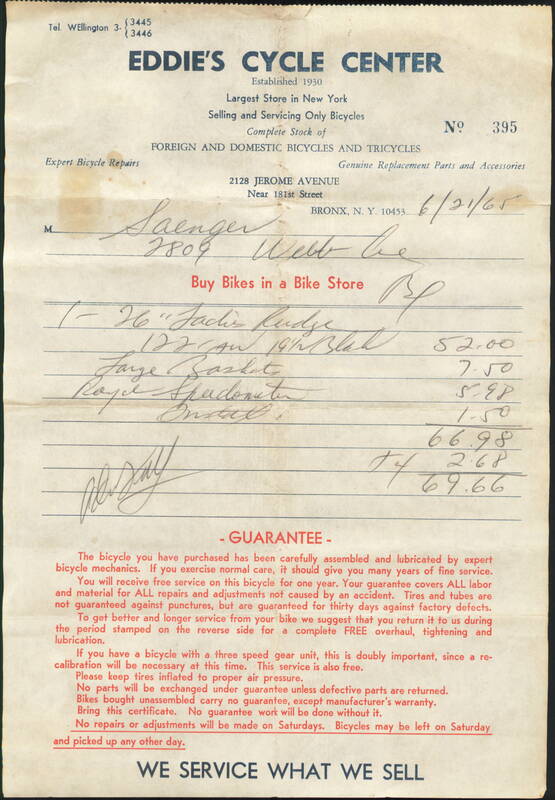 Tel. WEllington 3- {3445
{3446
EDDIE'S CYCLE CENTER
Established 1930
Largest Store in New York
Selling and Servicing Only Bicycles
Complete Stock of
Nº 395
FOREIGN AND DOMESTIC BICYCLES AND TRICYCLES
Expert Bicycle Repairs
Genuine Replacement Parts and Accessories
2128 JEROME AVENUE
Near 181st Street
BRONX, N. Y. 10453 6/21/65
M Saenger
2809 Webb Ave
Bx
Buy Bikes in a Bike Store
1 - 26" Ladies Rudge
19½ Black 52.00
Large Baskets 7.50
Speedometer 5.98
Install. 1.50
66.98
2.68
69.66
- GUARANTEE -
The bicycle you have purchased has been carefully assembled and lubricated by expert
bicycle mechanics. If you exercise normal care, it should give you many years of fine service.
You will receive free service on this bicycle for one year. Your guarantee covers ALL labor
and material for ALL repairs and adjustments not caused by an accident. Tires and tubes are
not guaranteed against punctures, but are guaranteed for thirty days against factory defects.
To get better and longer service from your bike we suggest that you return it to us during
the period stamped on the reverse side for a complete FREE overhaul, tightening and
lubrication.
If you have a bicycle with a three speed gear unit, this is doubly important, since a re-
calibration will be necessary at this time. This service is also free.
Please keep tires inflated to proper air pressure.
No parts will be exchanged under guarantee unless defective parts are returned.
Bikes bought unassembled carry no guarantee, except manufacturer's warranty.
Bring this certificate. No guarantee work will be done without it.
No repairs or adjustments will be made on Saturdays. Bicycles may be left on Saturday
and picked up any other day.
WE SERVICE WHAT WE SELL